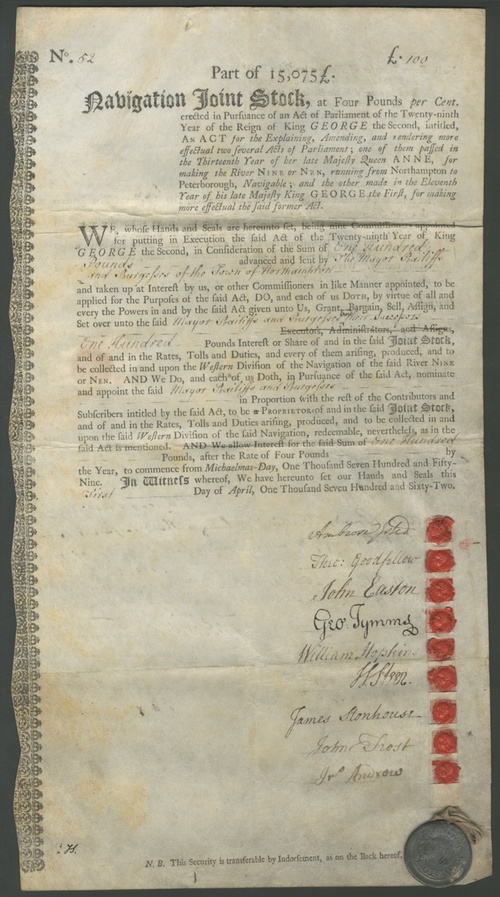 Nº. 52 £. 100
Part of 15,075£.
Navigation Joint Stock, at Four Pounds per Cent.
erected in Pursuance of an Act of Parliament of the Twenty-ninth
Year of the Reign of King GEORGE the Second, intitled,
An ACT for the Explaining, Amending, and rendering more
effectual two several Acts of Parliament; one of them passed in
the Thirteenth Year of her late Majesty Queen ANNE, for
making the River NINE or NEN, running from Northampton to
Peterborough, Navigable; and the other made in the Eleventh
Year of his late Majesty King GEORGE the First, for making
more effectual the said former Act.
WE, whose Hands and Seals are hereunto set, being nine Commissioners appointed
for putting in Execution the said Act of the Twenty-ninth Year of King
GEORGE the Second, in Consideration of the Sum of One Hundred
Pounds advanced and lent by The Mayor Bailiffs
and Burgesses of the Town of Northampton
and taken up at Interest by us, or other Commissioners in like Manner appointed, to be
applied for the Purposes of the said Act, DO, and each of us DOTH, by virtue of all and
every the Powers in and by the said Act given unto Us, Grant, Bargain, Sell, Assign,
Set over unto the said Mayor Bailiffs and Burgesses their Successors
Executors, Administrators, and Assigns,
One Hundred Pounds Interest or Share of and in the said Joint Stock,
and of and in the Rates, Tolls and Duties, and every of them arising, produced, and to
be collected in and upon the Western Division of the Navigation of the said River NINE
or NEN. AND We Do, and each of us Doth, in Pursuance of the said Act, nominate
and appoint the said Mayor Bailiffs and Burgesses
in Proportion with the rest of the Contributors and
Subscribers intitled by the said Act, to be a PROPRIETOR of and in the said Joint Stock,
and of and in the Rates, Tolls and Duties arising, produced, and to be collected in and
upon the said Western Division of the said Navigation, redeemable, nevertheless, as in the
said Act is mentioned. AND We allow Interest for the said Sum of One Hundred
Pounds, after the Rate of Four Pounds by
the Year, to commence from Michaelmas-Day, One Thousand Seven Hundred and Fifty-
Nine. In Witness whereof, We have hereunto set our Hands and Seals this
First Day of April, One Thousand Seven Hundred and Sixty-Two.
Theo: Goodfellow
John Easton
Geo. Tymms
William Hopkins
James Stonhouse
John Frost
Jno. Andrew
N. B. This Security is transferable by Indorsement, as on the Back hereof.